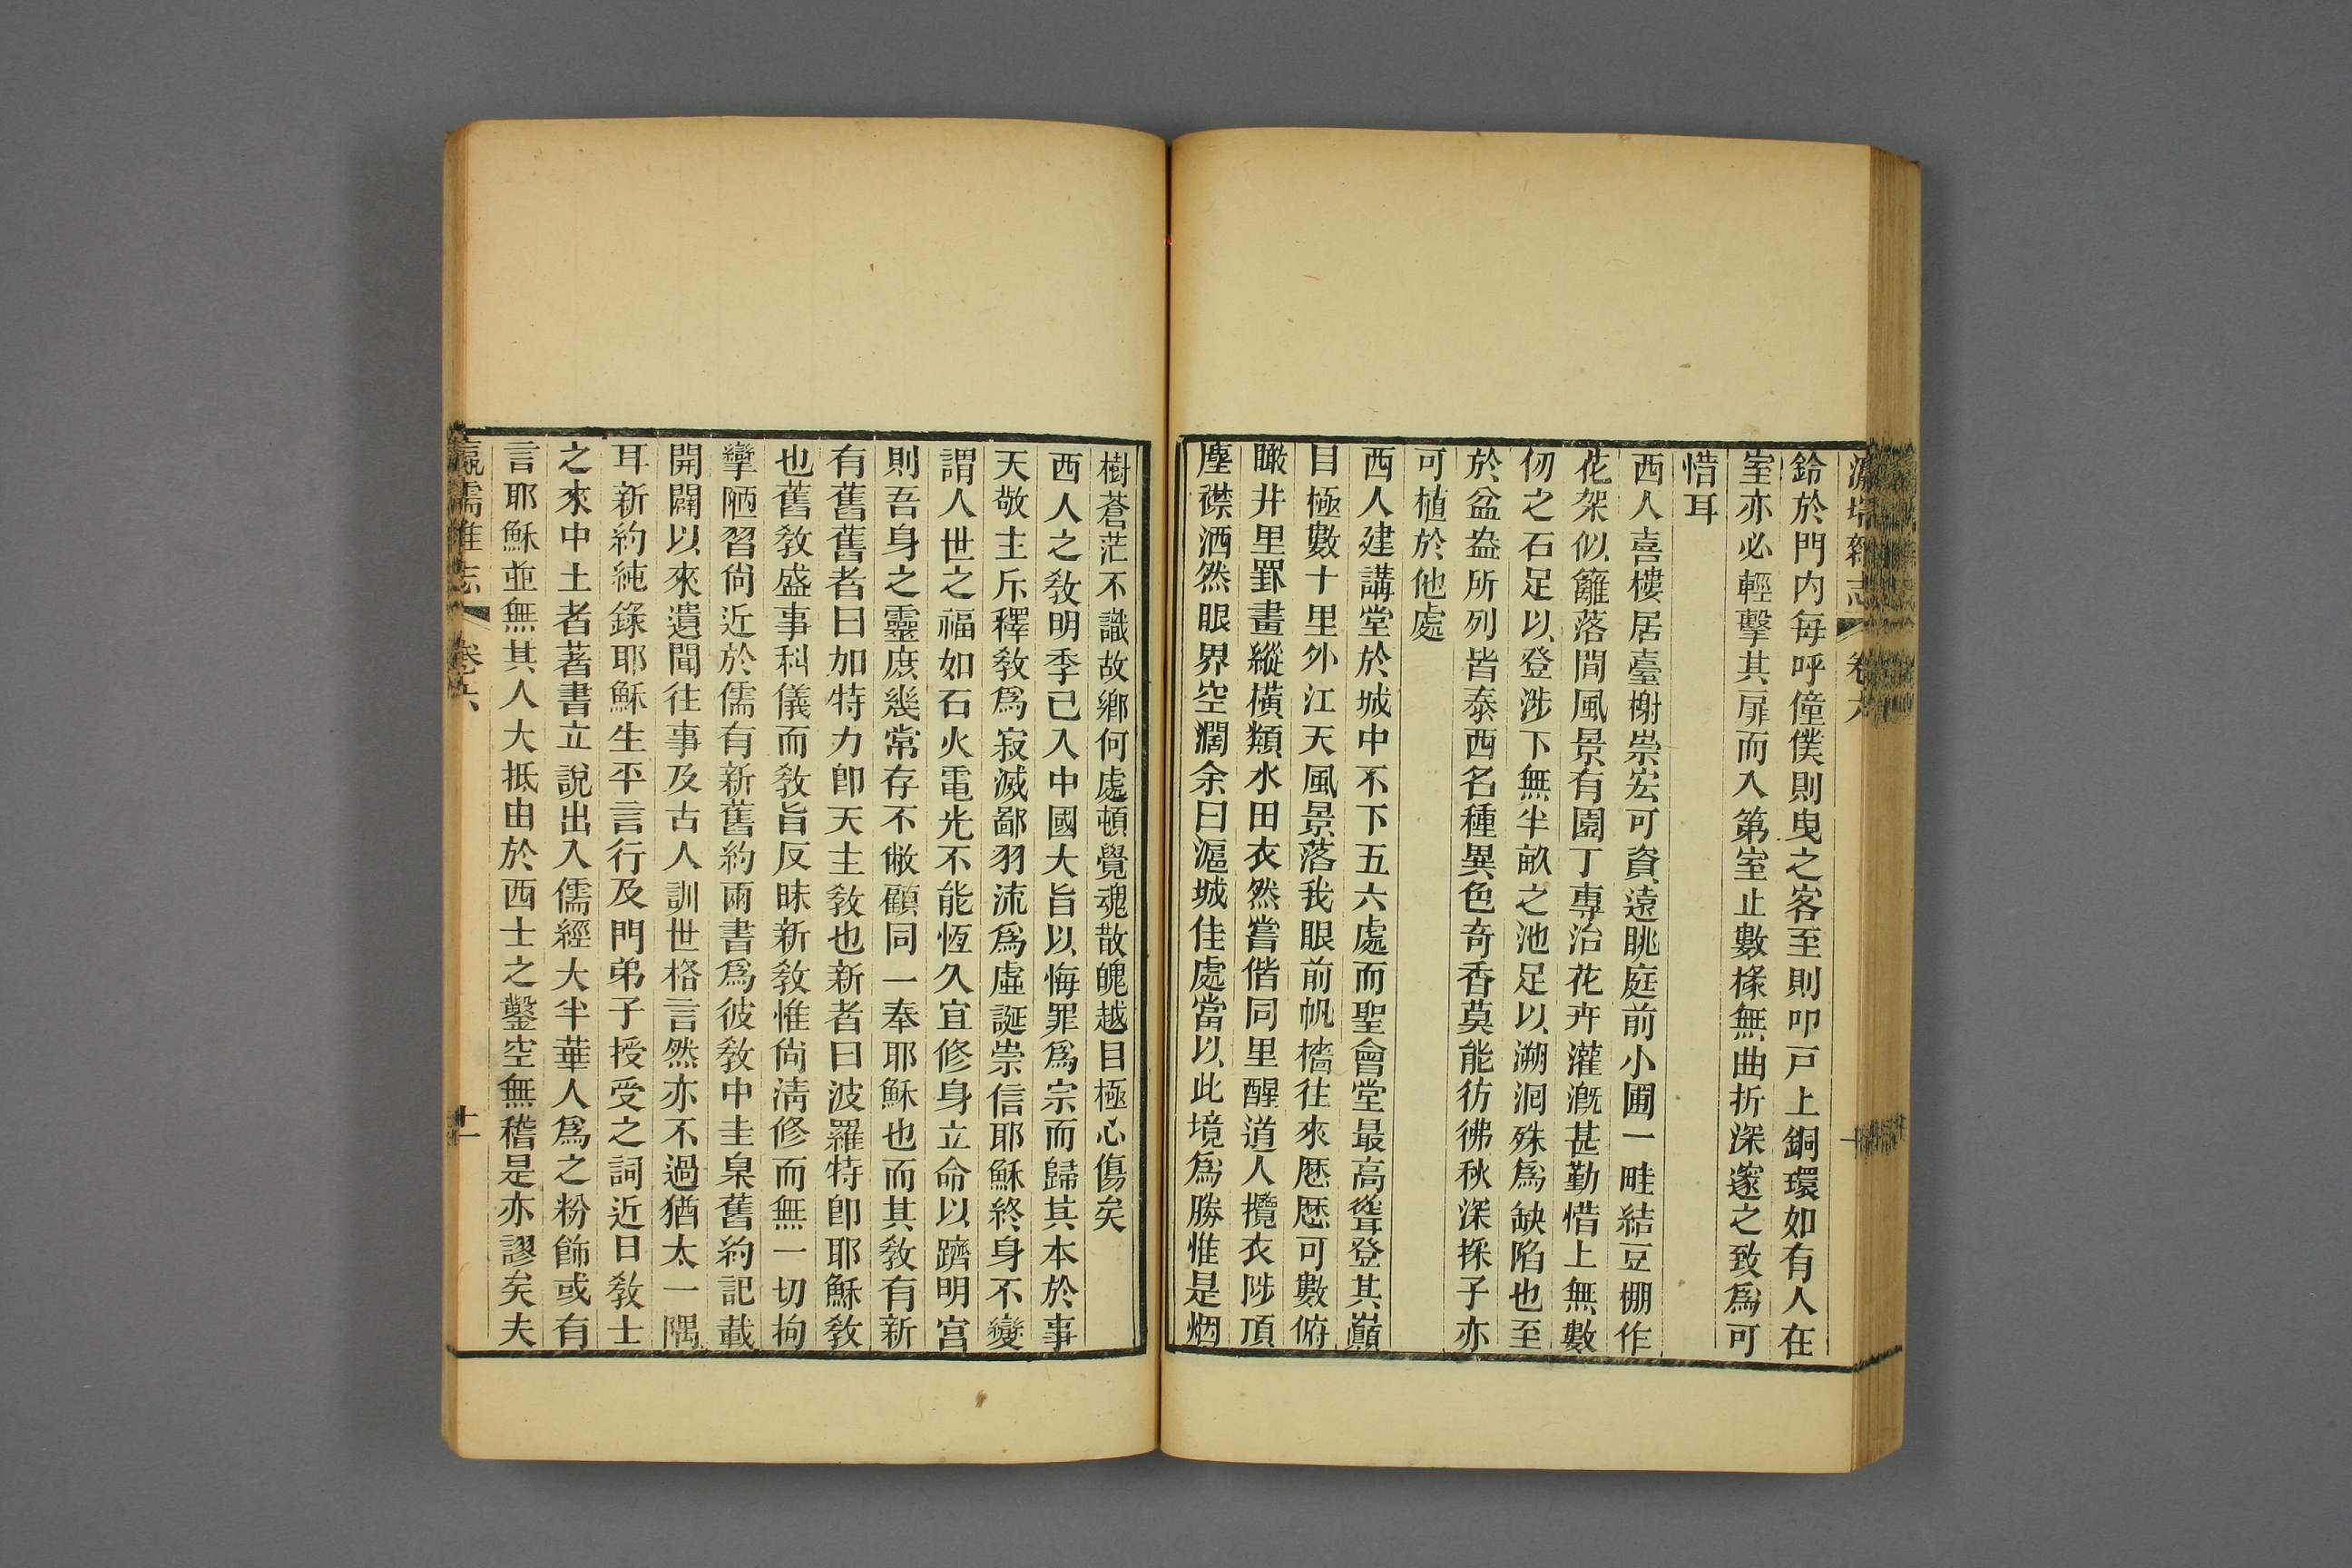 瀛壖雜志 卷六
鈴於門內每呼僮僕則曳之客至則叩戸上銅環如有人在
室亦必輕擊其扉而入第室止數椽無曲折深邃之致爲可
惜耳
西人喜樓居臺榭崇宏可資遠眺庭前小圃一畦結豆棚作
花架似籬落間風景有園丁專治花卉灌漑甚勤惜上無數
仞之石足以登涉下無半畝之池足以溯洄殊爲缺陷也至
於盆盎所列皆泰西名種異色奇香莫能彷彿秋深採子亦
可植於他處
西人建講堂於城中不下五六處而聖會堂最高聳登其巔
目極數十里外江天風景落我眼前帆檣往來歷歷可數俯
瞰井里罫畫縱橫類水田衣然嘗偕同里醒道人攬衣陟頂
塵襟洒然眼界空濶余曰滬城佳處當以此境爲勝惟是烟
樹蒼茫不識故鄉何處頓覺魂散魄越目極心傷矣
西人之敎明季已入中國大旨以悔罪爲宗而歸其本於事
天敬主斥釋敎爲寂滅鄙羽流爲虛誕崇信耶穌終身不變
謂人世之福如石火電光不能恆久宜修身立命以躋明宫
則吾身之靈庶幾常存不敝顧同一奉耶穌也而其敎有新
有舊舊者曰加特力卽天主敎也新者曰波羅特卽耶穌敎
也舊敎盛事科儀而敎旨反昧新敎惟尙淸修而無一切拘
攣陋習尙近於儒有新舊約兩書爲彼敎中圭臬舊約記載
開闢以來遺聞往事及古人訓世格言然亦不過猶太一隅
耳新約純錄耶穌生平言行及門弟子授受之詞近日敎士
之來中土者著書立說出入儒經大半華人爲之粉飾或有
言耶穌並無其人大抵由於西士之鑿空無稽是亦謬矣夫
瀛壖雜志 卷六 十一